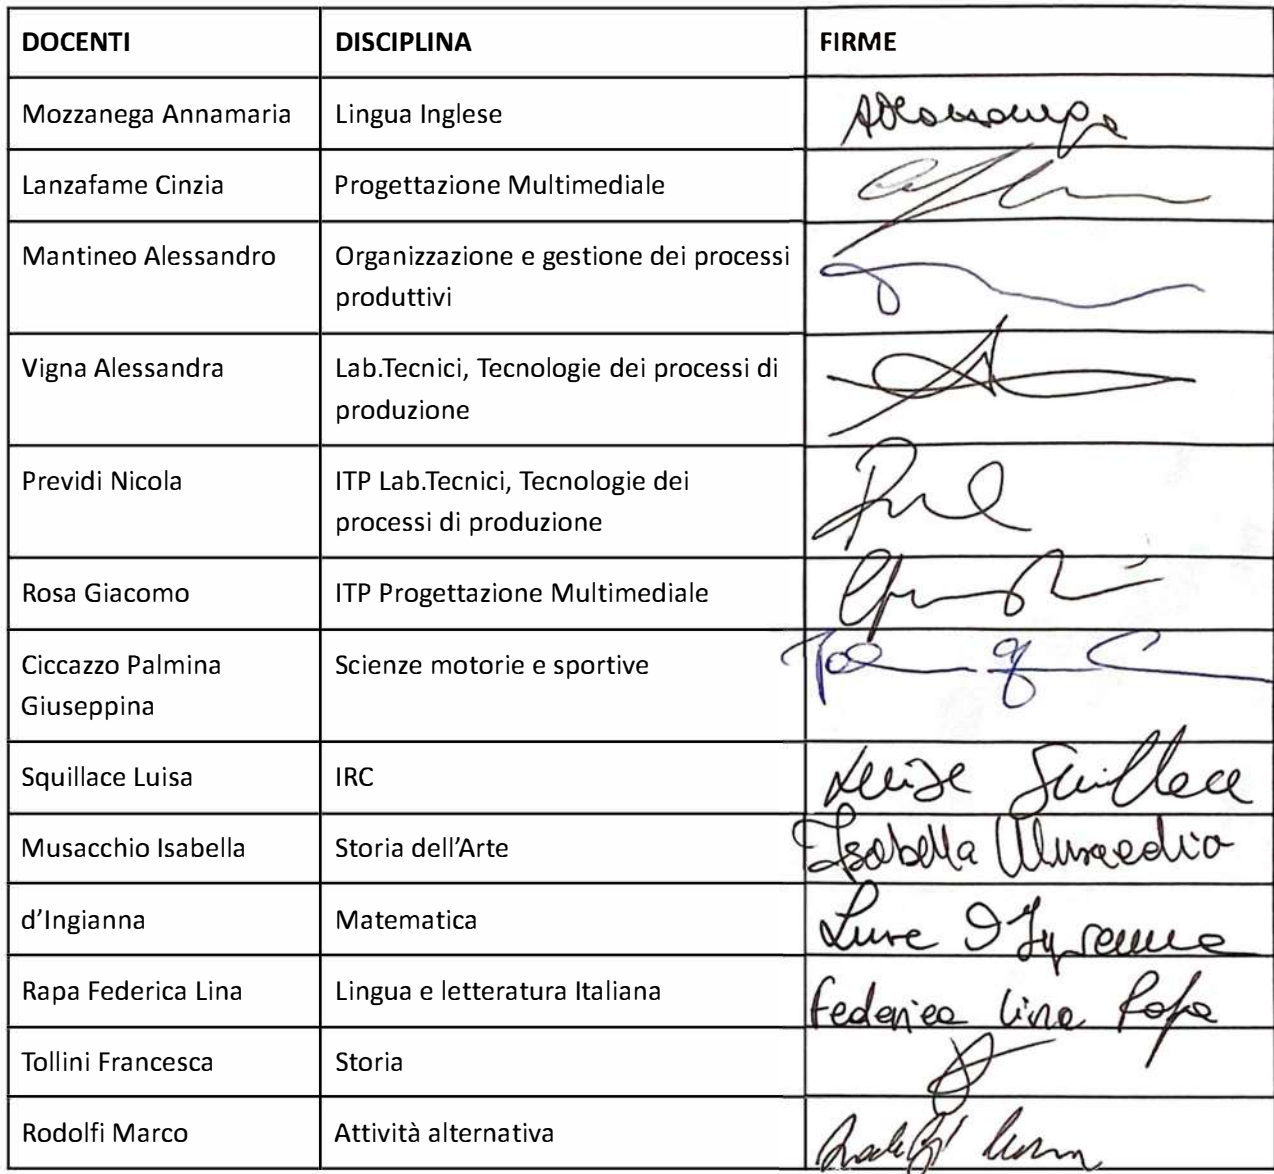 DOCENTI DISCIPLINA FIRME
Mozzanega Annamaria Lingua Inglese
Lanzafame Cinzia Progettazione Multimediale
Mantineo Alessandro Organizzazione e gestione dei processi
produttivi
Vigna Alessandra Lab.Tecnici, Tecnologie dei processi di
produzione
Previdi Nicola ITP Lab.Tecnici, Tecnologie dei
processi di produzione
Rosa Giacomo ITP Progettazione Multimediale
Ciccazzo Palmina Scienze motorie e sportive
Giuseppina
Squillace Luisa IRC Luisa Squillace
Musacchio Isabella Storia dell'Arte Isabella Musacchio
d'Ingianna Matematica
Rapa Federica Lina Lingua e letteratura Italiana Federica Lina Rapa
Tollini Francesca Storia
Rodolfi Marco Attività alternativa Rodolfi Marco